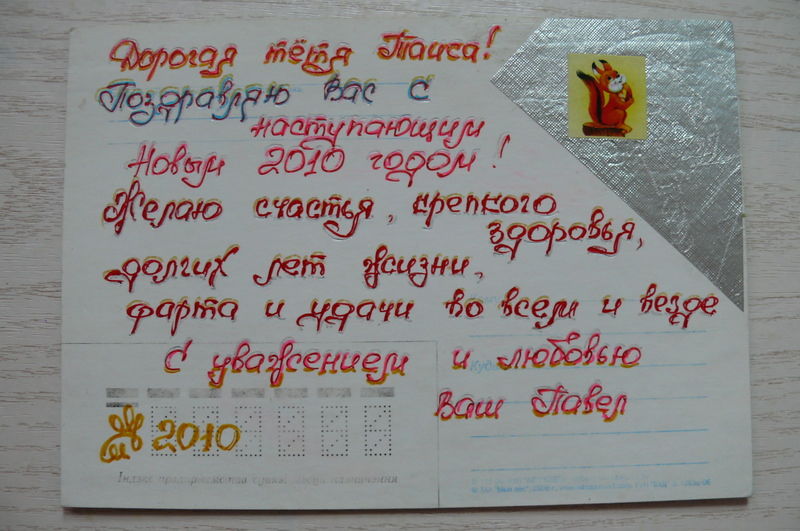 Дорогая тётя Таиса!
Поздравляю Вас с
наступающим
Новым 2010 годом!
Желаю счастья, крепкого
здоровья,
долгих лет жизни,
фарта и удачи во всем и везде
С уважением и любовью
Ваш Павел
2010
Куди